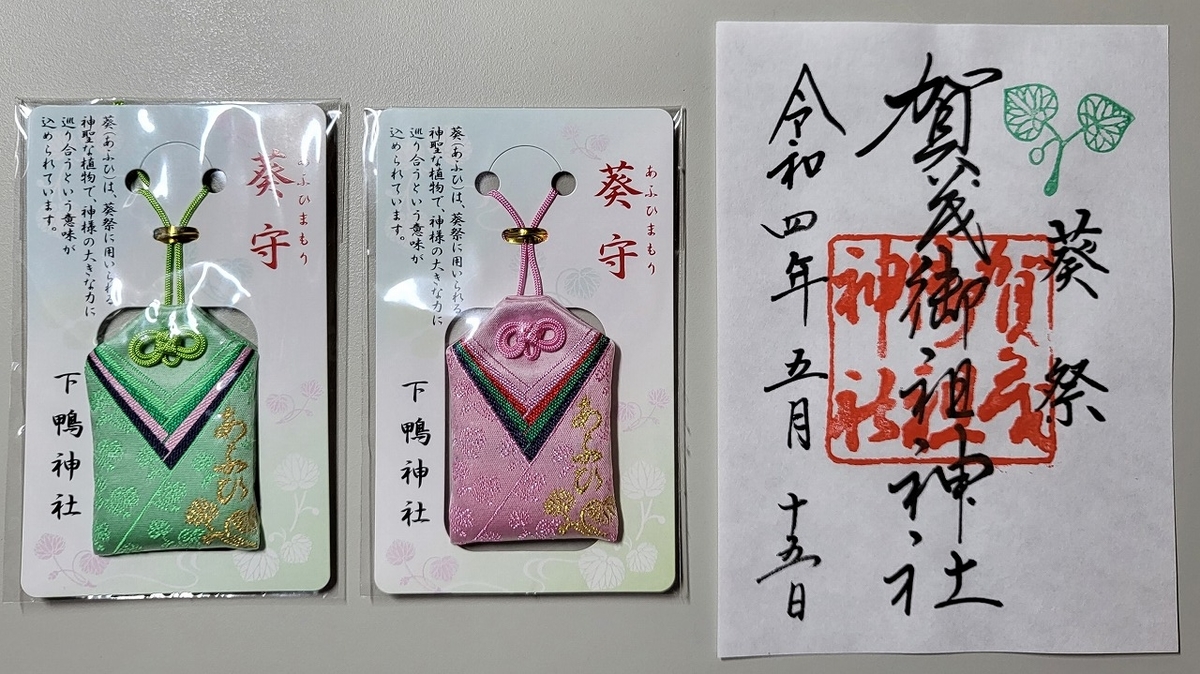 あふひまもり
葵守
葵(あふひ)は、葵祭に用いられる
神聖な植物で、神様の大きな力に
巡り合うという意味が
込められています。
下鴨神社
あふひ
あふひまもり
葵守
葵(あふひ)は、葵祭に用いられる
神聖な植物で、神様の大きな力に
巡り合うという意味が
込められています。
下鴨神社
あふひ
葵祭
賀茂御祖神社
賀茂
御祖
神社
令和四年五月十五日